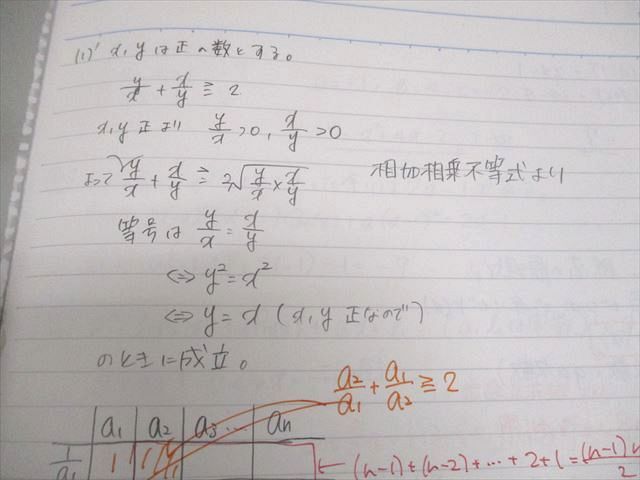 (1)' x,yは正の数とする。
y/x + x/y ≧ 2
x,y正より y/x>0, x/y>0
よって y/x + x/y ≧ 2√(y/x × x/y) 相加相乗不等式より
等号は y/x = x/y
⇔ y² = x²
⇔ y = x (x,y 正なので)
のときに成立。
a₂/a₁ + a₁/a₂ ≧ 2
a₁ a₂ a₃… an
1/a₁ 1
← (n-1)+(n-2)+…+2+1=(n-1)n/2